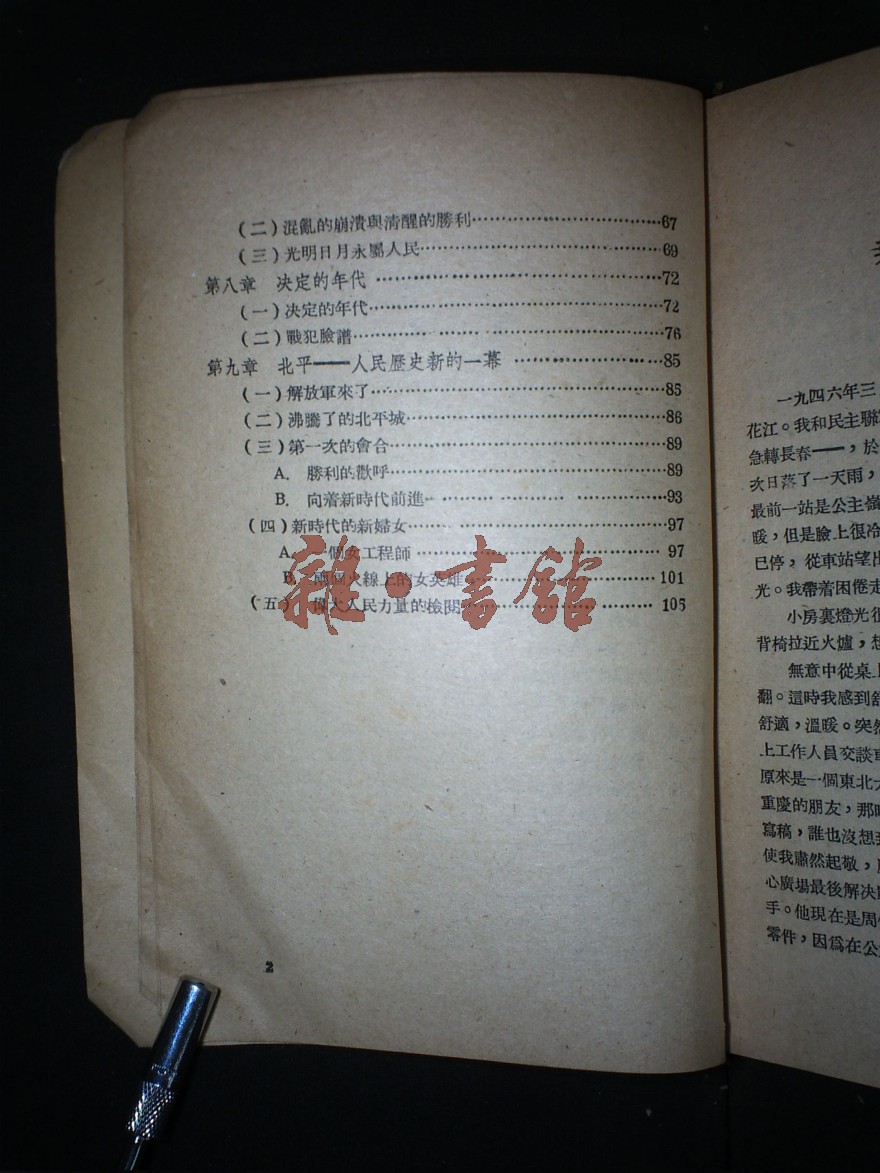 (二)混亂的崩潰與清醒的勝利……………………67
(三)光明日月永屬人民……………………………69
第八章 决定的年代……………………………………72
(一)决定的年代……………………………………72
(二)戰犯臉譜………………………………………76
第九章 北平——人民歷史新的一幕…………………85
(一)解放軍來了……………………………………85
(二)沸騰了的北平城………………………………86
(三)第一次的會合…………………………………89
A. 勝利的歡呼……………………………………89
B. 向着新時代前進………………………………93
(四)新時代的新婦女………………………………97
A. 一個女工程師…………………………………97
B. 兩個火線上的女英雄…………………………101
(五)偉大人民力量的檢閱…………………………105
雜·書館
2
一九四六年三
花江。我和民主聯
急轉長春——,於
次日落了一天雨,
最前一站是公主嶺
暖,但是臉上很冷
已停,從車站望出
光。我帶着困倦走
小房裏燈光很
背椅拉近火爐,想
無意中從桌上
翻。這時我感到舒
舒適,溫暖。突然
上工作人員交談車
原來是一個東北大
重慶的朋友,那時
寫稿,誰也沒想到
使我肅然起敬,
心廣場最後解决
手。他現在是周
零件,因爲在公